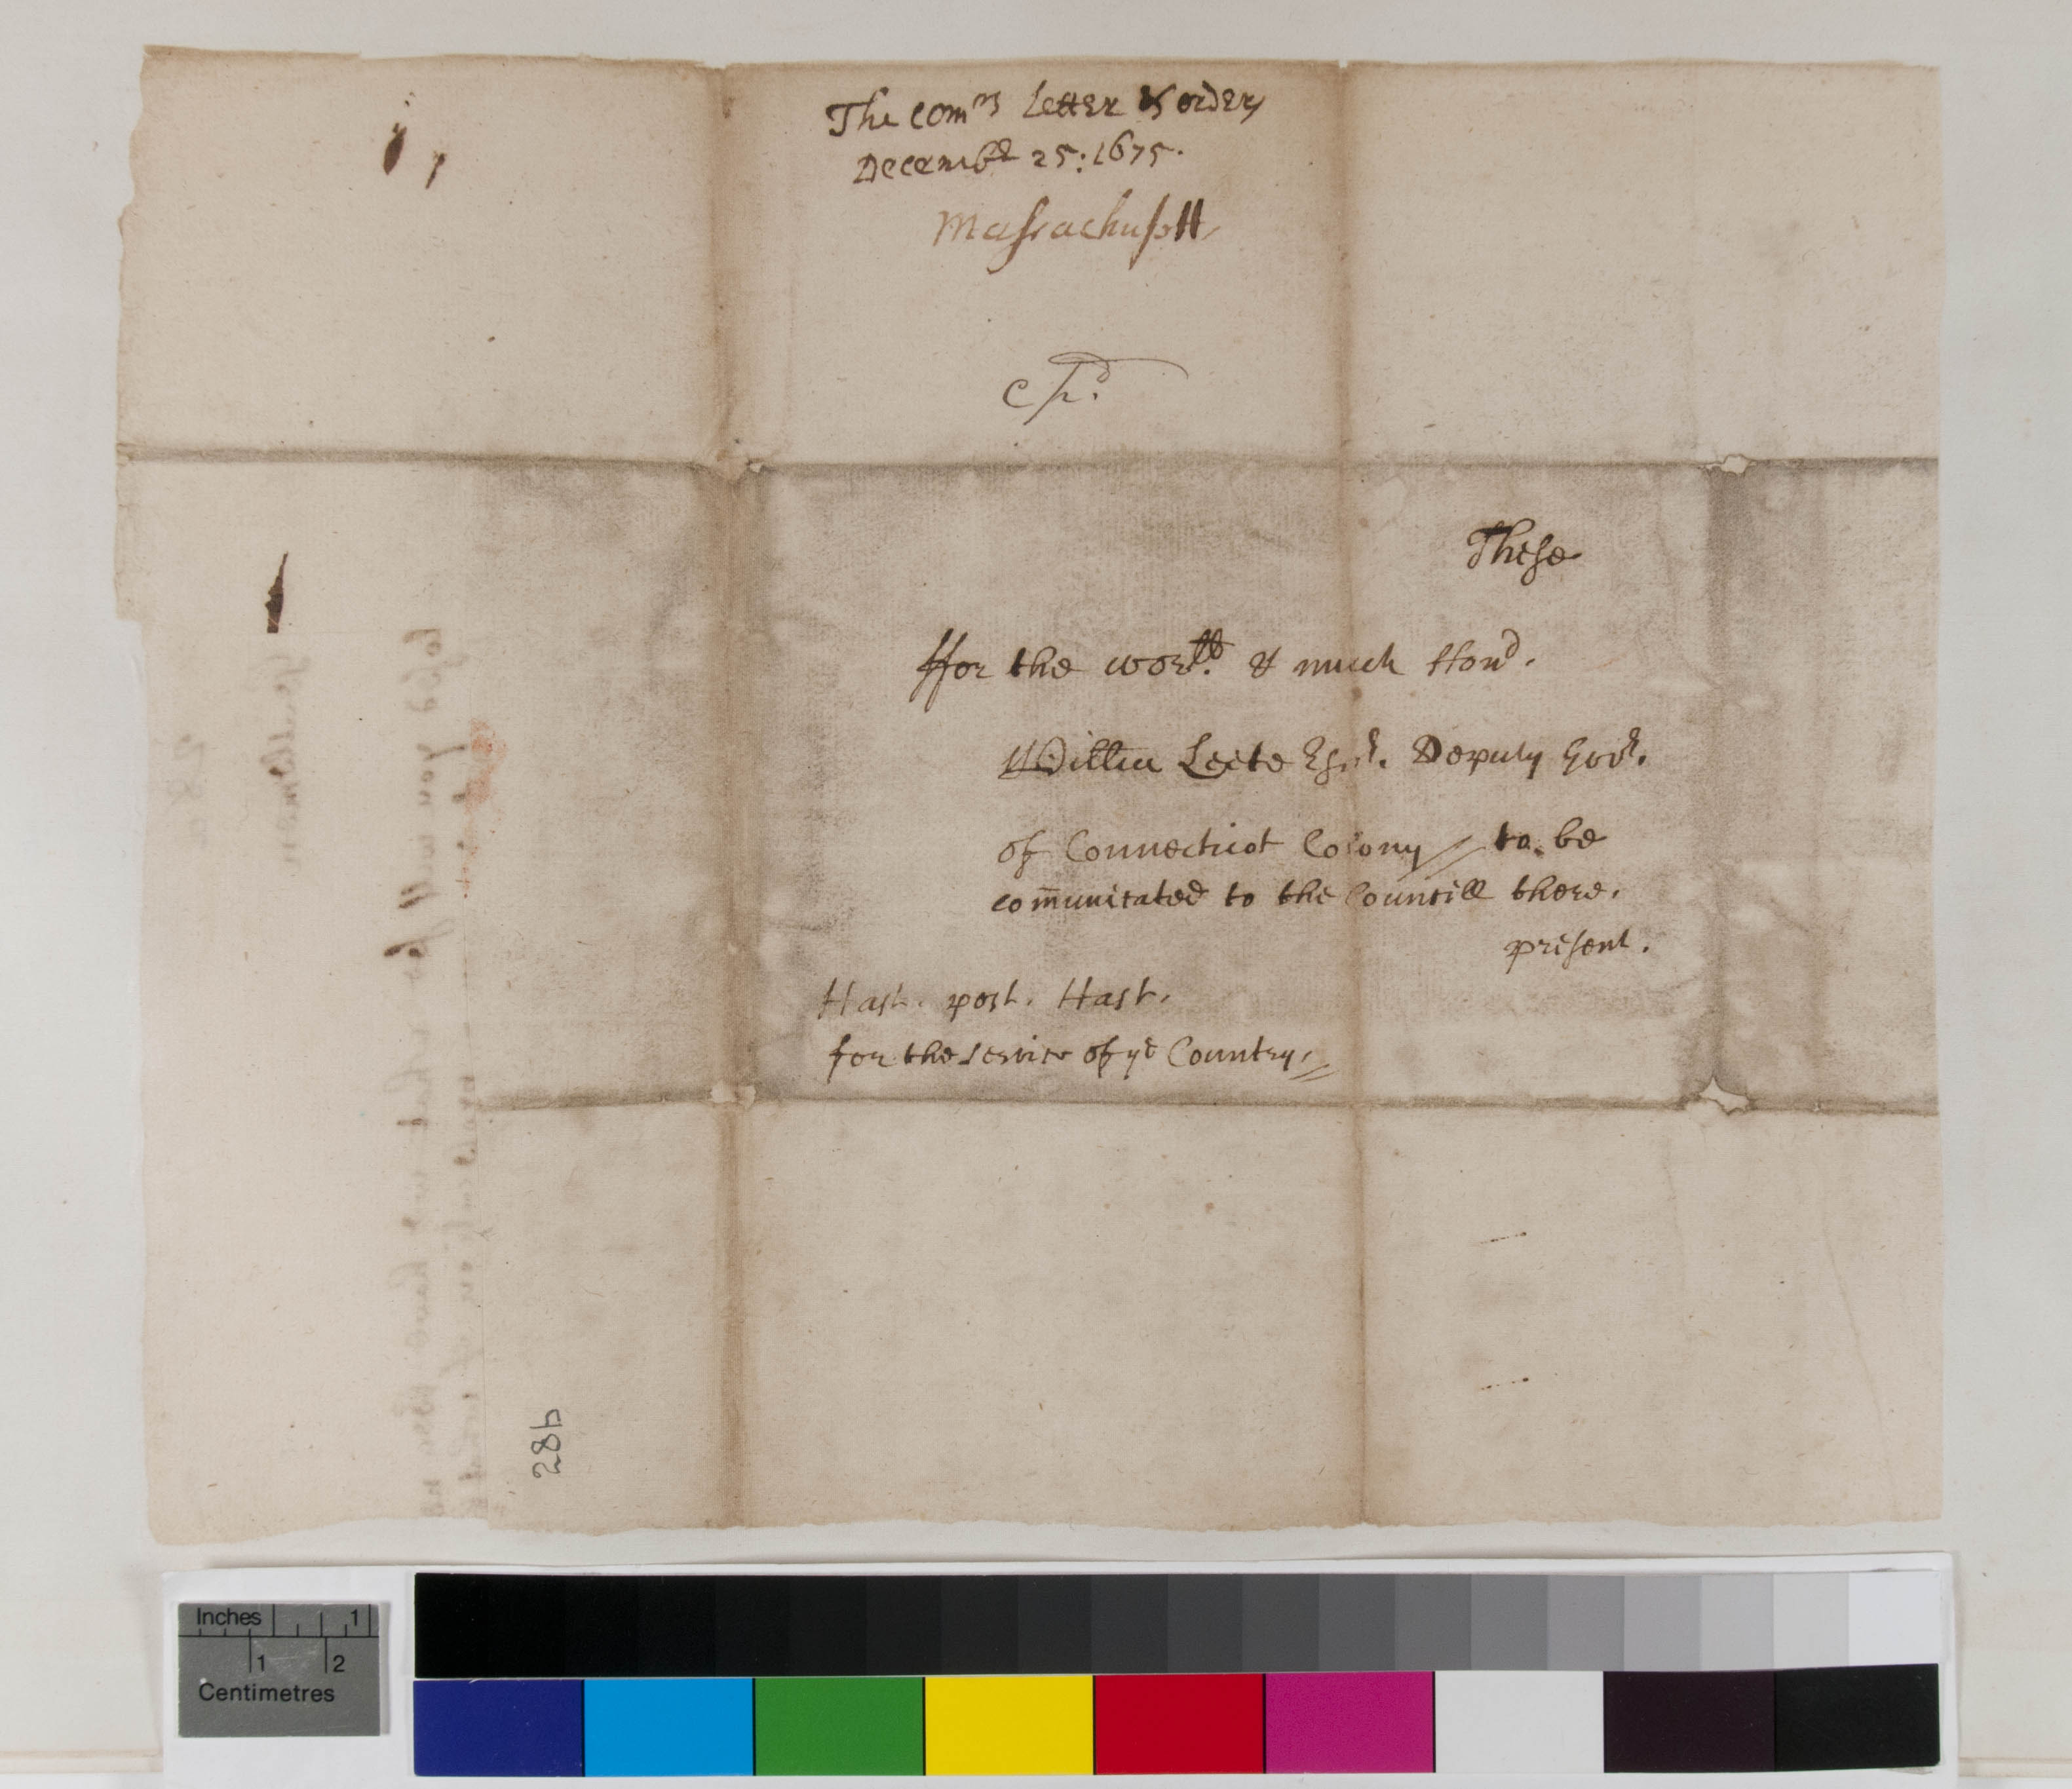 The comrs Letter & order
Decembr 25: 1675.
Massachusett
These
ffor the worll. & much Hond.
Willm Leete Esqr. Deputy Govr.
of Connecticot Colony // to be
com̄unicated to the Councill there.
present.
Hast. post. Hast.
for the service of ye Country. //
28b
Inches 1
1 2
Centimetres